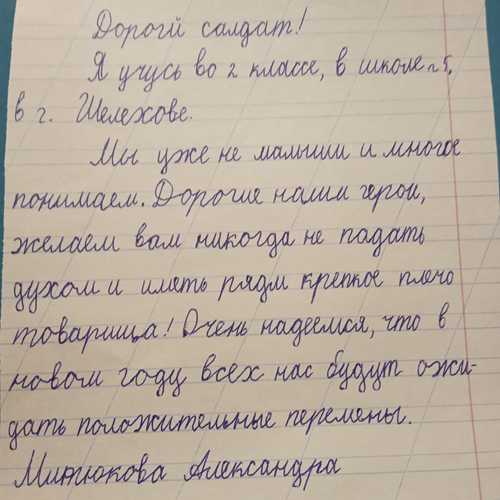 Дорогй солдат!
Я учусь во 2 классе, в школе №5,
в г. Шелехове.
Мы уже не малыши и многое
понимаем. Дорогие наши герои,
желаем вам никогда не падать
духом и иметь рядм крепкое плечо
товарища! Очень надеемся, что в
новом году всех нас будут ожи-
дать положительные перемены.
Митюкова Александра